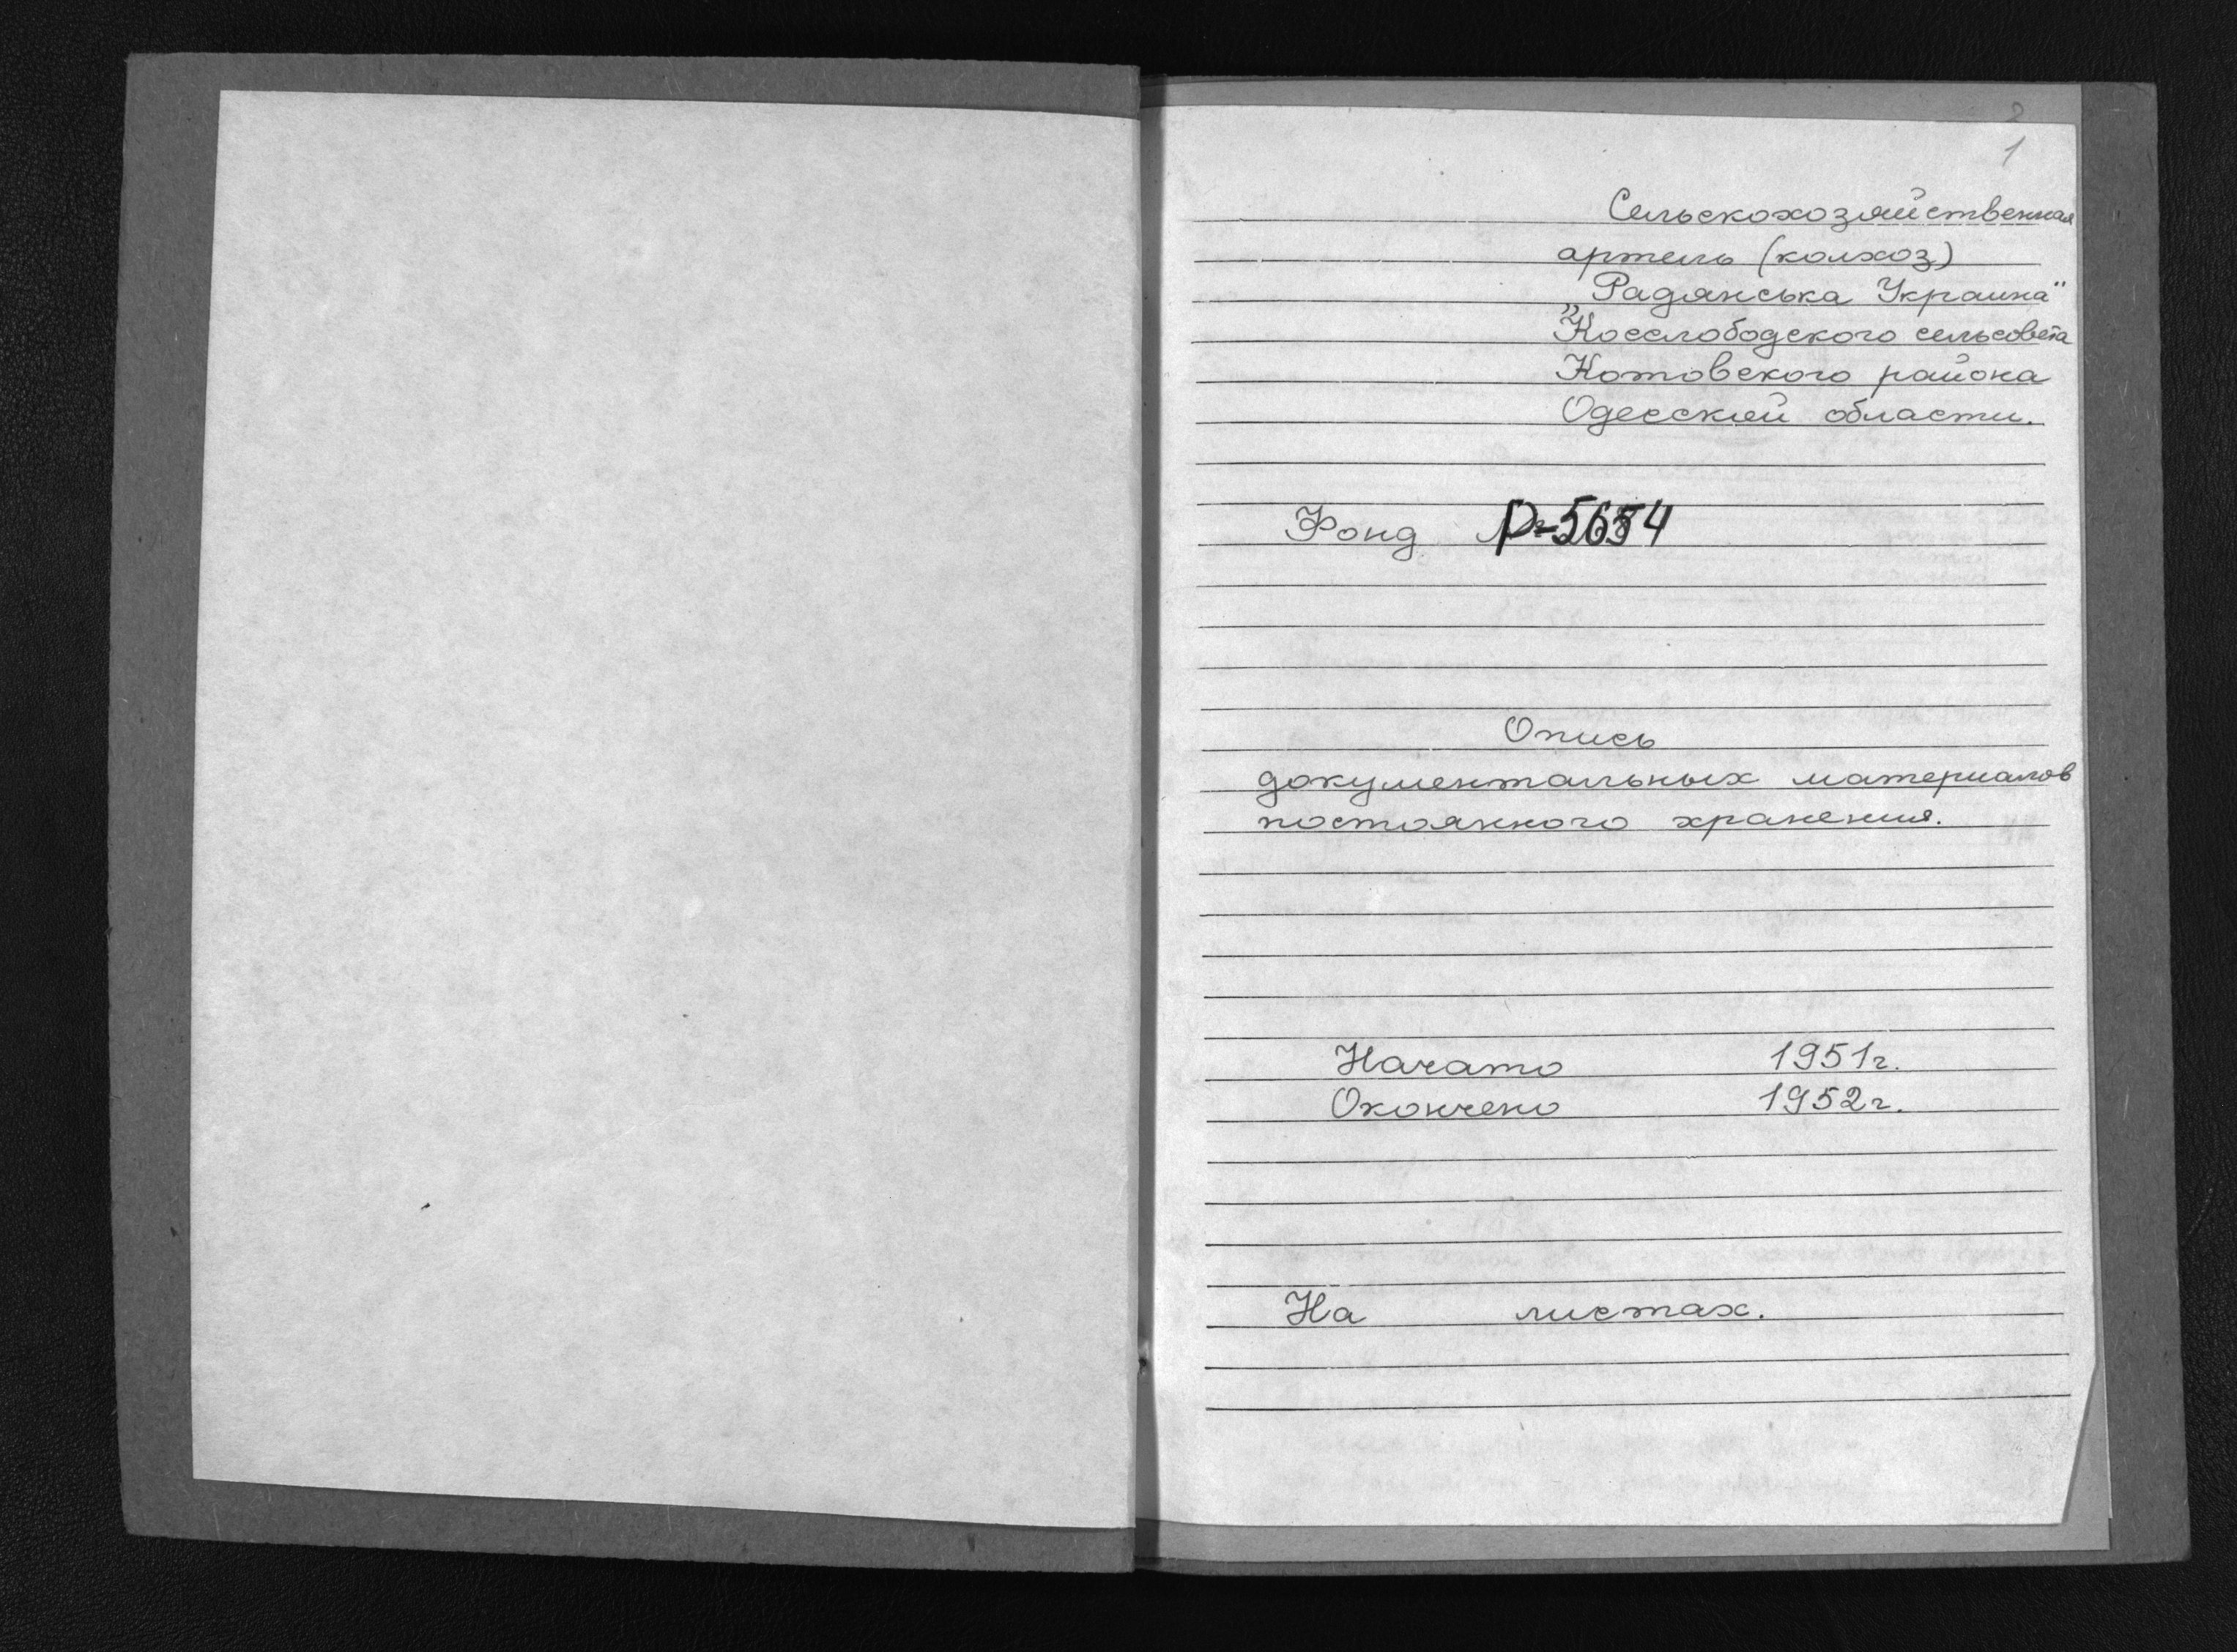 2
1
Сельскохозяйственная
артель (колхоз)
„Радянська Украина"
Косслободского сельсовета
Котовского района
Одесской области.
Фонд Р-5654
Опись
документальных материалов
постоянного хранения.
Начато 1951г.
Окончено 1952г.
На листах.